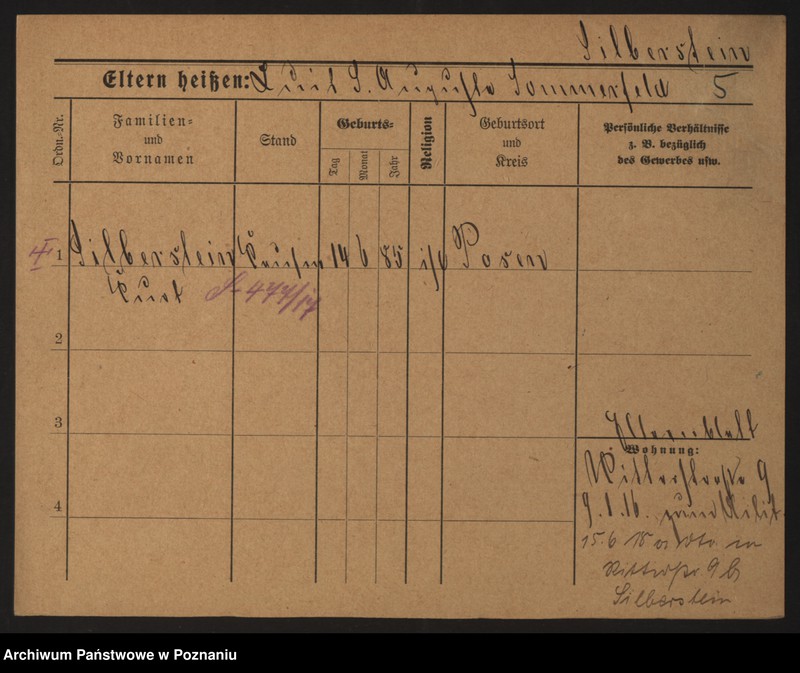 Silberstein
Eltern heißen: S. Auguste Sommerfeld 5
Ordn.-Nr.
Familien-
und
Vornamen
Stand
Geburts-
Tag
Monat
Jahr
Religion
Geburtsort
und
Kreis
Persönliche Verhältnisse
z. B. bezüglich
des Gewerbes usw.
1 Silberstein Kaufm 14 6 85 isr Posen
Kurt 477/17
2
3
Elternblatt
Wohnung:
Ritterstraße 9
9.1.16. zum Milit.
4
15.6 18
Ritterstr. 9 b
Silberstein
Archiwum Państwowe w Poznaniu